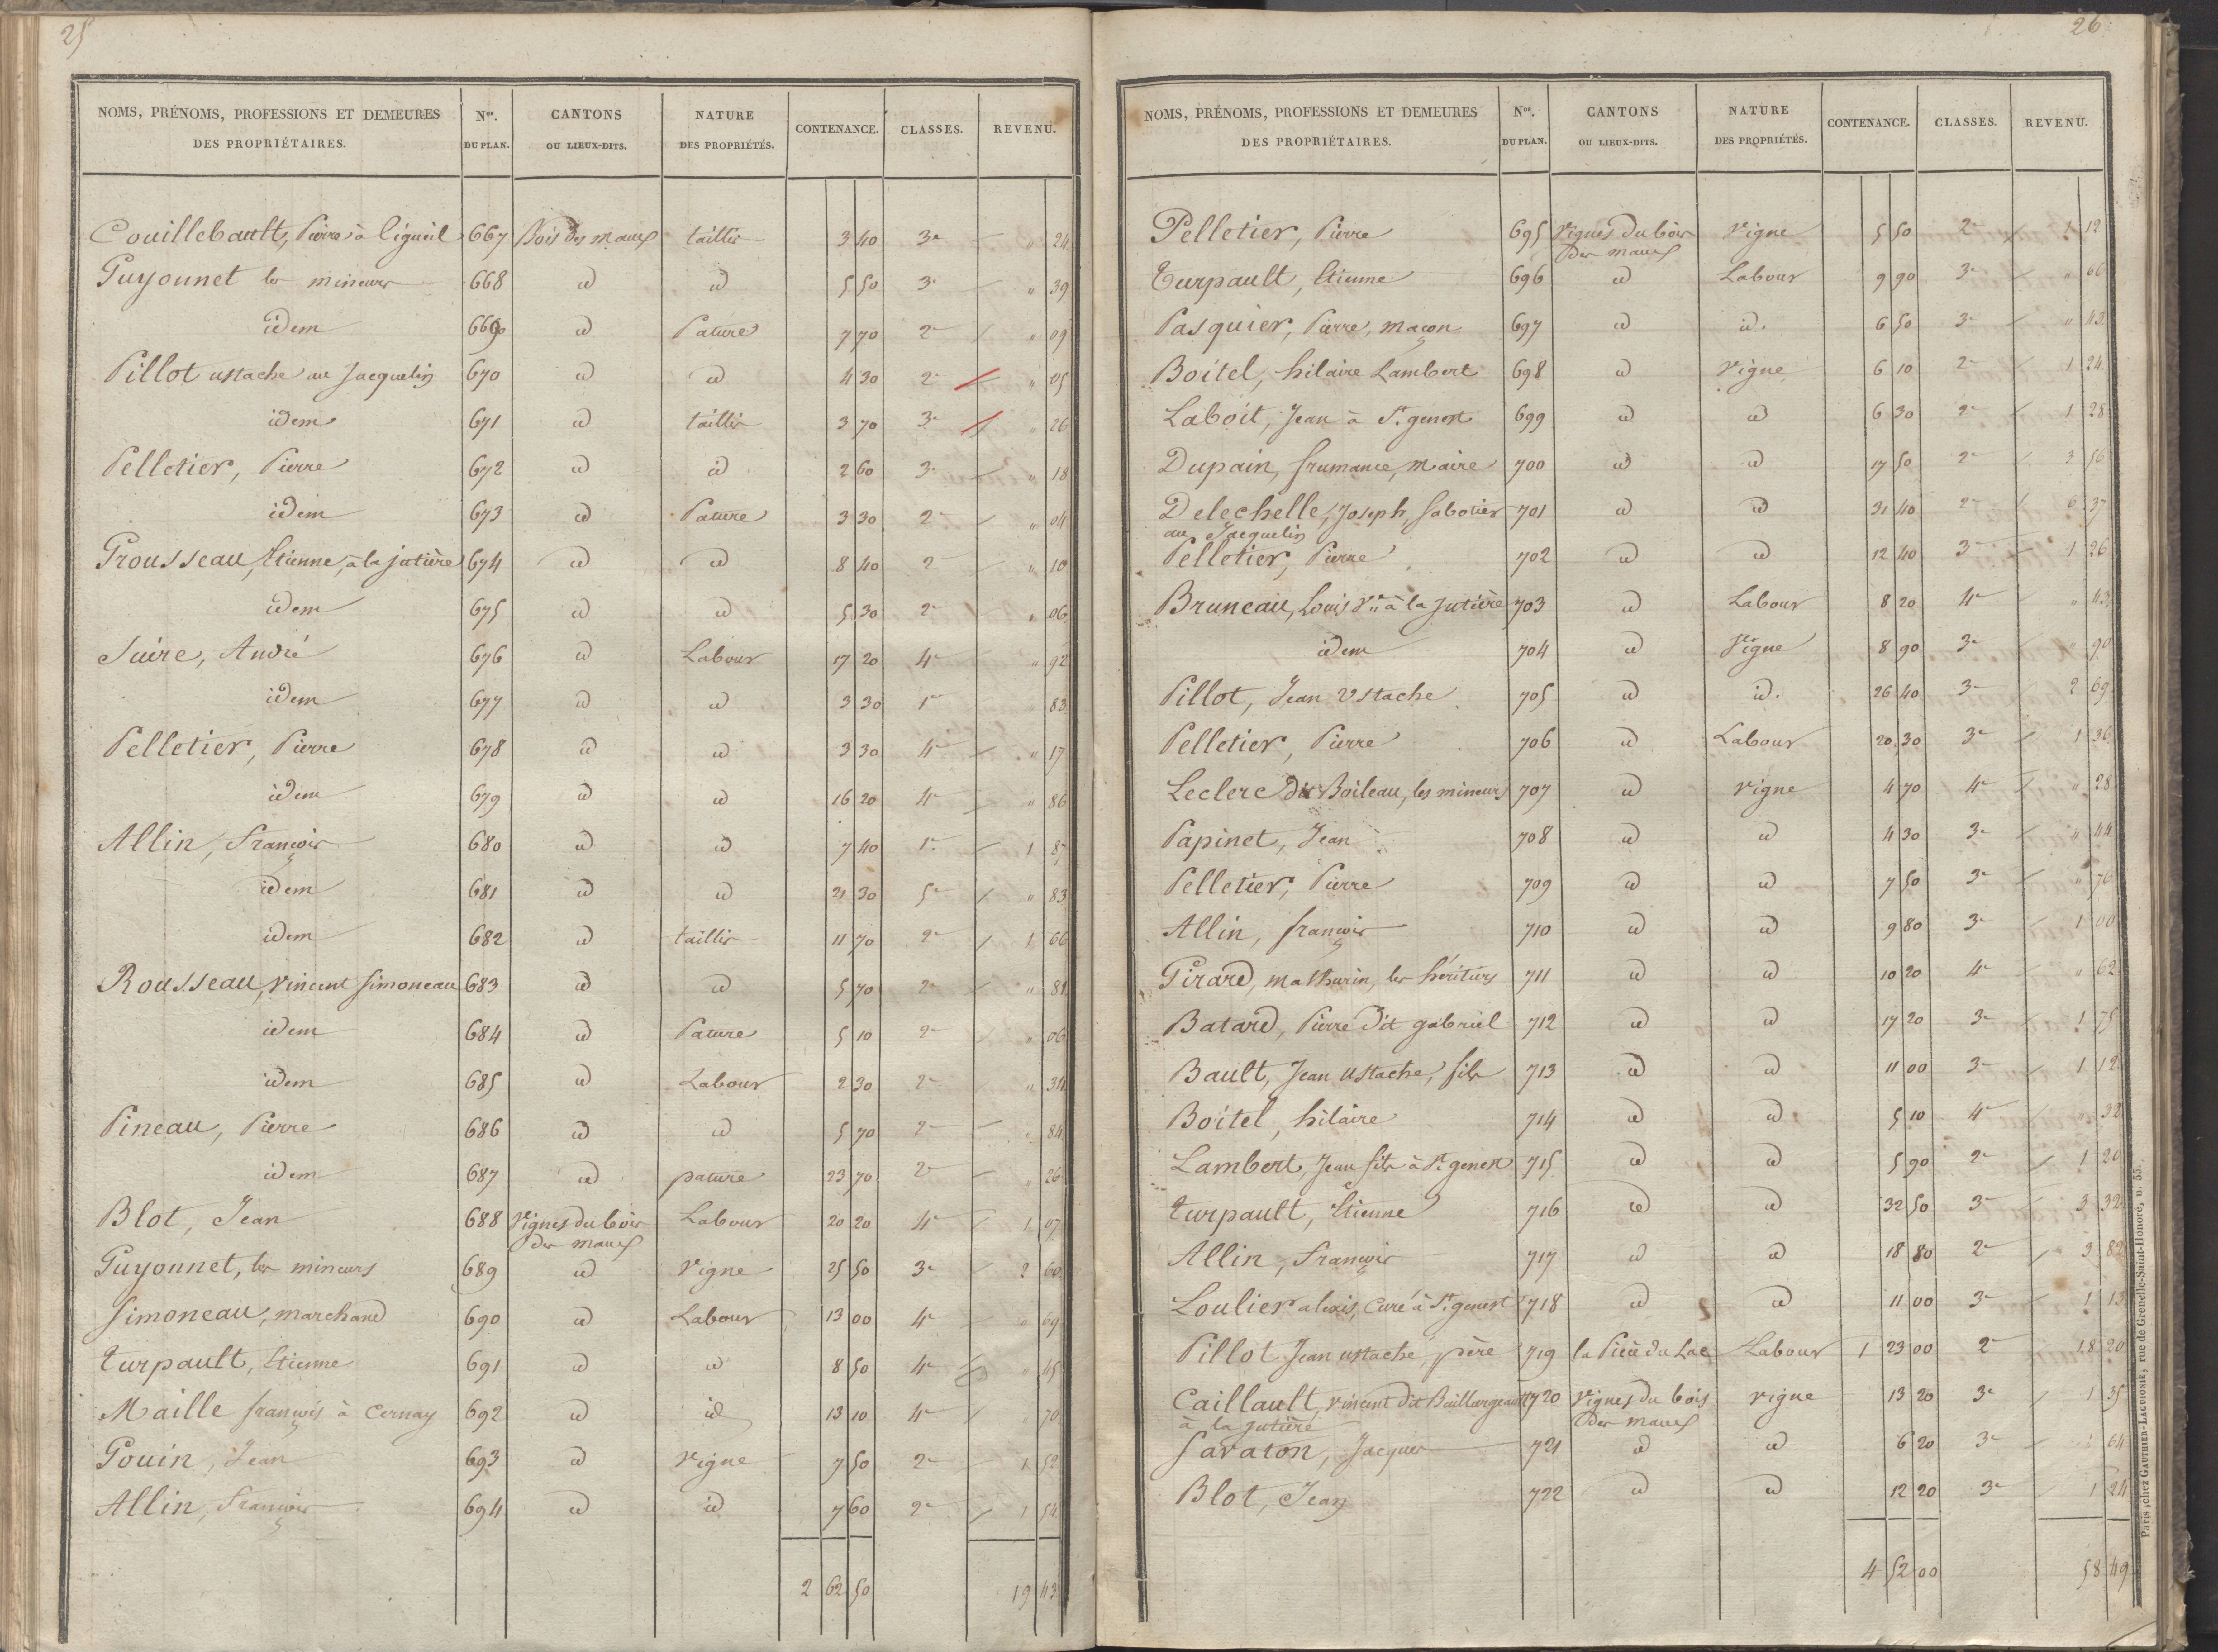 25
NOMS, PRÉNOMS, PROFESSIONS ET DEMEURES DES PROPRIÉTAIRES. Nos. DU PLAN. CANTONS OU LIEUX-DITS. NATURE DES PROPRIÉTÉS. CONTENANCE. CLASSES. REVENU.
Couillebault, Pierre à ligueil 667 Bois des maux taillis 3 40 3e " 24
Guyonnet les mineurs 668 id id 5 50 3e " 39
idem 669 id Pature 7 70 2e " 09
Pillot ustache au Jacquelin 670 id id 4 30 2e " 05
idem 671 id taillis 3 70 3e " 26
Pelletier, Pierre 672 id id 2 60 3e " 18
idem 673 id Pature 3 30 2e " 04
Grousseau, Etienne, à la jutière 674 id id 8 40 2e " 10
idem 675 id id 5 30 2e " 06
Suire, André 676 id Labour 17 20 4e " 92
idem 677 id id 3 30 1e 83
Pelletier, Pierre 678 id id 3 30 4e " 17
idem 679 id id 16 20 4e " 86
Allin, François 680 id id 7 40 1e 1 87
idem 681 id id 21 30 5e " 83
idem 682 id taillis 11 70 2e 1 66
Rousseau, Vincent Simoneau 683 id id 5 70 2e " 81
idem 684 id Pature 5 10 2e " 06
idem 685 id Labour 2 30 2e " 34
Pineau, Pierre 686 id id 5 70 2e " 84
idem 687 id pature 23 70 2e " 26
Blot, Jean 688 Vignes du bois Labour 20 20 4e 1 07
des maux
Guyonnet, les mineurs 689 id Vigne 25 50 3e 2 60
Simoneau, marchand 690 id Labour 13 00 4e " 69
turpault, Etienne 691 id id 8 50 4e " 45
Maille françois à Cernay 692 id id 13 10 4e " 70
Gouin, Jean 693 id Vigne 7 50 2e 1 52
Allin, François 694 id id 7 60 2e 1 54
2 62 50 19 43
26
NOMS, PRÉNOMS, PROFESSIONS ET DEMEURES DES PROPRIÉTAIRES. Nos. DU PLAN. CANTONS OU LIEUX-DITS. NATURE DES PROPRIÉTÉS. CONTENANCE. CLASSES. REVENU.
Pelletier, Pierre 695 Vignes du bois Vigne 5 50 2e 1 12
des maux
Turpault, Etienne 696 id Labour 9 90 3e " 66
Pasquier, Pierre, maçon 697 id id. 6 50 3e " 43
Boitel, hilaire Lambert 698 id Vigne 6 10 2e 1 24
Laboit, Jean à St. genest 699 id id 6 30 2e 1 28
Dupain, frumance, maire 700 id id 17 50 2e 3 56
Delechelle, Joseph, Sabotier 701 id id 31 40 2e 6 37
au Jacquelin
Pelletier, Pierre 702 id id 12 40 3e 1 26
Bruneau, Louis Vve à la Jutière 703 id Labour 8 20 4e " 43
idem 704 id Vigne 8 90 3e " 90
Pillot, Jean Ustache 705 id id. 26 40 3e 2 69
Pelletier, Pierre 706 id Labour 20 30 3e 1 36
Leclerc dit Boileau, les mineurs 707 id Vigne 4 70 4e " 28
Papinet, Jean 708 id id 4 30 3e " 44
Pelletier, Pierre 709 id id 7 50 3e " 76
Allin, françois 710 id id 9 80 3e 1 00
Girard, mathurin, les héritiers 711 id id 10 20 4e " 62
Batard, Pierre dit gabriel 712 id id 17 20 3e 1 75
Bault, Jean ustache, fils 713 id id 11 00 3e 1 12
Boitel, hilaire 714 id id 5 10 4e 32
Lambert, Jean fils à St. genest 715 id id 5 90 2e 1 20
turpault, Etienne 716 id id 32 50 3e 3 32
Allin, François 717 id id 18 80 2e 3 82
Loulier alexis, Curé à St. genest 718 id id 11 00 3e 1 13
Pillot Jean ustache, père 719 la Pièce du Lac Labour 1 23 00 2e 18 20
Caillault, vincent dit Baillargeault 720 Vignes du bois vigne 13 20 3e 1 35
à la jutière des maux
Savaton, Jacques 721 id id 6 20 3e " 64
Blot, Jean 722 id id 12 20 3e 1 24
4 52 00 58 49
Paris, chez GAUTHIER-LAGUIONIE, rue de Grenelle-Saint-Honoré, n. 55.